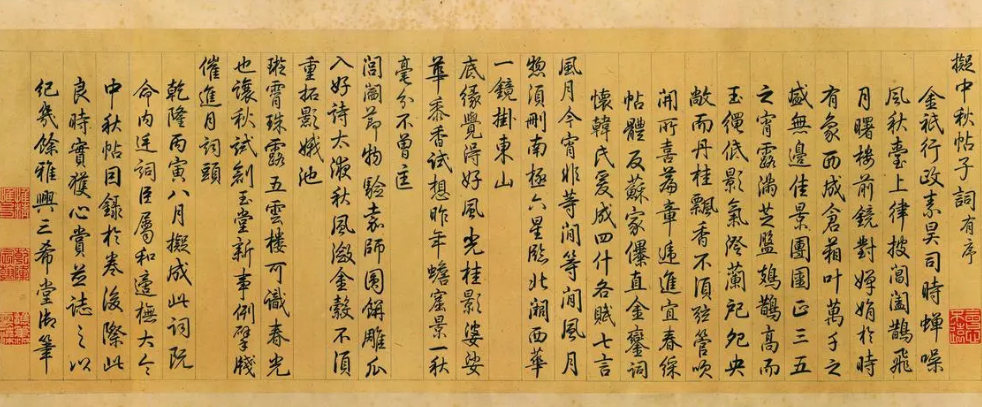 擬中秋帖子詞 有序
金祇行政素昊司時蟬噪
風秋臺上律披閶闔鵲飛
月曙樓前鏡對嬋娟於時
有象西成倉箱叶萬子之
盛無邊佳景團圞正三五
之宵露滿芝盤鳷鵲高而
玉繩低影氣澄蘭戺夗央
敞而丹桂飄香不須弦管吹
開所喜篇章遞進宜春綵
帖體反蘇家儤直金鑾詞
懷韓氏爰成四什各賦七言
風月今宵非等閒等閒風月
惣須刪南極六星臨北闕西華
一鏡掛東山
底緣覺得好風光桂影婆娑
華黍香試想昨年蟾窟景一秋
毫分不曾匡
閭閻節物驗嘉師圓餅雕瓜
入好詩太液秋風瀲金縠不須
重拓影娥池
璇霄珠露五雲樓可識春光
也讓秋試剏玉堂新事例擘牋
催進月詞頭
乾隆丙寅八月擬成此詞既
命內廷詞臣屬和遂橅大令
中秋帖因錄於卷後際此
良時實獲心賞並誌之以
紀幾餘雅興三希堂御筆